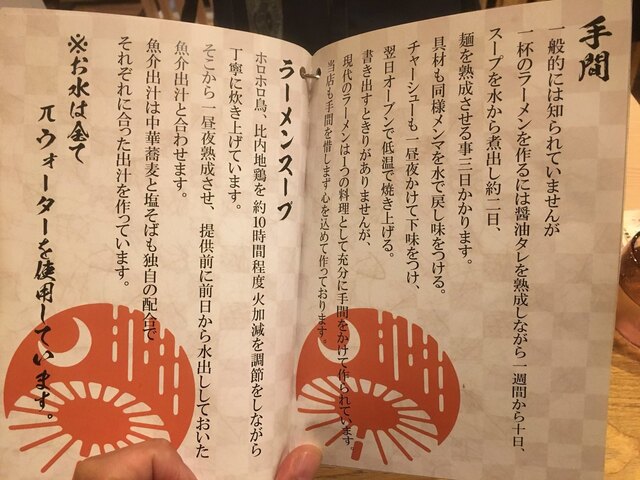 手間
一般的には知られていませんが
一杯のラーメンを作るには醤油タレを熟成しながら一週間から十日、
スープを水から煮出し約二日、
麺を熟成させる事三日かかります。
具材も同様メンマを水で戻し味をつける。
チャーシューも一昼夜かけて下味をつけ、
翌日オーブンで低温で焼き上げる。
書き出すときりがありませんが、
現代のラーメンは1つの料理として充分に手間をかけて作られています。
当店も手間を惜しまず心を込めて作っております。
ラーメンスープ
ホロホロ鳥、比内地鶏を約10時間程度火加減を調節をしながら
丁寧に炊き上げています。
そこから一昼夜熟成させ、提供前に前日から水出ししておいた
魚介出汁と合わせます。
魚介出汁は中華蕎麦と塩そばも独自の配合で
それぞれに合った出汁を作っています。
※お水は全て
πウォーターを使用しています。